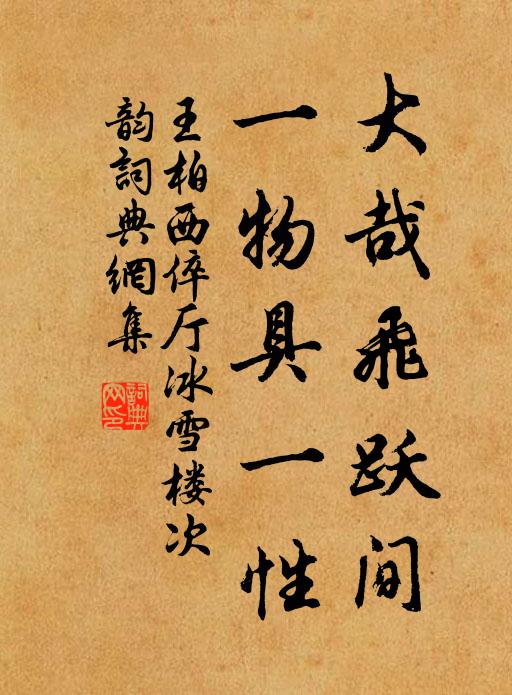 大哉飛跃间
一物具一性
王柏西倅厅冰雪楼次
韵詞典網集
詞典
网印